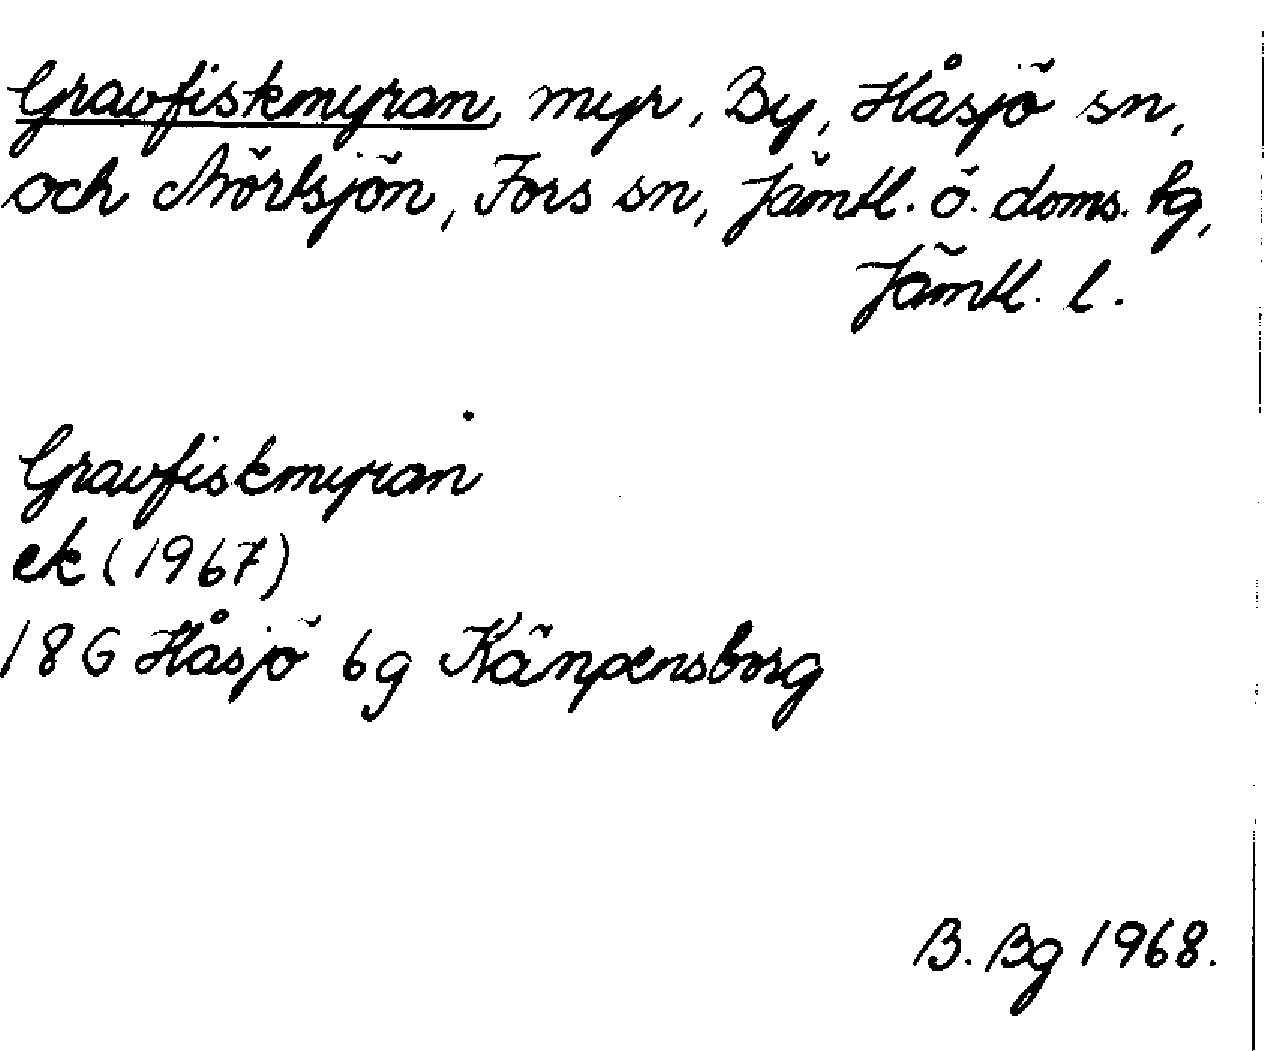 Gravfiskmyran, myr, By, Håsjö sn,
och Mörtsjön, Fors sn, Jämtl. ö. doms. hg,
Jämtl. l.
Gravfiskmyran
ek (1967)
18G Håsjö 6g Kämpensborg
B. Bg 1968.